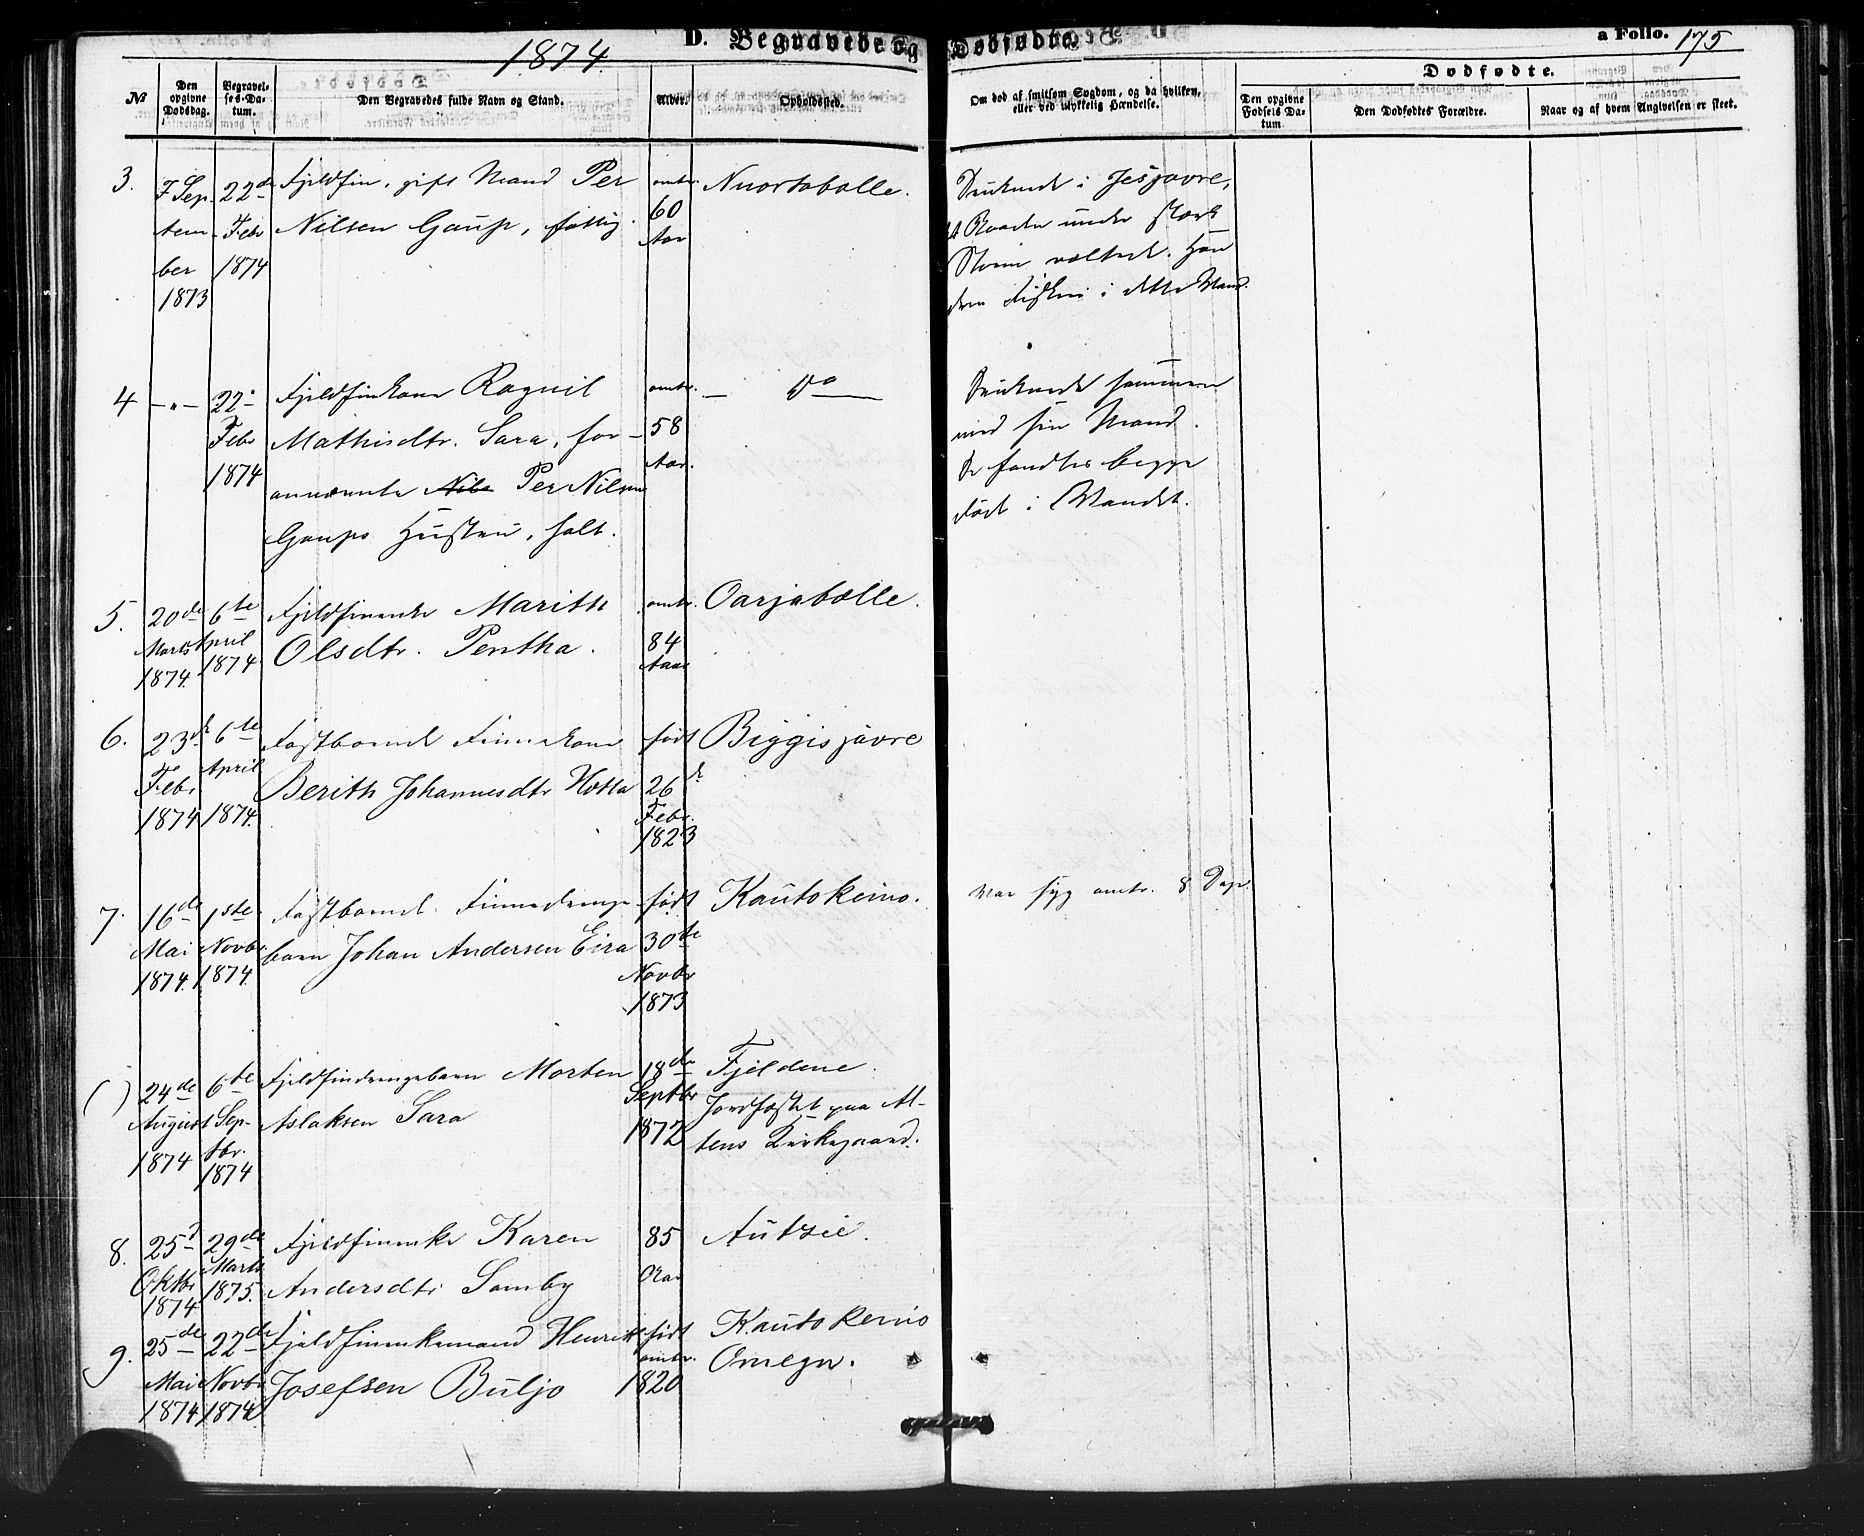 1874.
D. Begravede og Dødfødte.
a Folio. 175
No
Den opgivne Dødsdag.
Begravelses-Datum.
Den Begravedes fulde Navn og Stand.
Alder.
Opholdssted.
Om død af smitsom Sygdom, og da hvilken, eller ved ulykkelig Hændelse.
Dødfødte.
Den opgivne Fødsels Datum
Den Dødfødtes Forældre.
Naar og af hvem Angivelsen er skeet.
3.
Sep-
tem-
ber
1873
22de
Febr
1874
Fjeldfin, gift Mand Per
Nilsen Gaup, fattig.
omtr.
60
Aar
Nuortabølle.
Druknede i Jesjavre,
at Baaden under stærk
Storm væltede. Han
drev Fiskeri i dette Vand.
4
— „ —
22.
Febr
1874
Fjeldfinkone Ragnil
Mathisdtr. Sara, for-
annævnte Nils Per Nilsen
Gaups Hustru, halt.
omtr.
58
Aar.
— Do —
Druknede sammen
med sin Mand.
De fandtes begge
død i Vandet.
5.
20de
Marts
1874.
6te
April
1874
Fjeldfinenke Marith
Olsdtr. Pentha.
omtr.
84
Aar
Oarjabølle.
6.
23d
Febr
1874
6te
April
1874.
Fastboende Finnekone
Berith Johannesdtr Hotta
født
26d
Febr.
1823
Biggisjavre
7.
16de
Mai
1874.
1ste
Novbr.
1874.
Fastboende Finnedrenge-
barn Johan Andersen Eira
født
30te
Novbr
1873
Kautokeino.
Var syg omtr. 8 Dage.
( )
24de
August
1874
6te
Sep-
tbr.
1874
Fjeldfindrengebarn Morten
Aslaksen Sara
18de
Septbr
1872
Fjeldene.
Jordfæstet paa Al-
tens Kirkegaard.
8.
25d
Oktbr
1874
29de
Marts
1875.
Fjeldfinenke Karen
Andersdtr Somby
85
Aar
Autzie.
9.
25de
Mai
1874
22de
Novbr
1874.
Fjeldfinenkemand Henrik
Josefsen Buljo
født
omtr.
1820
Kautokeino
Omegn.